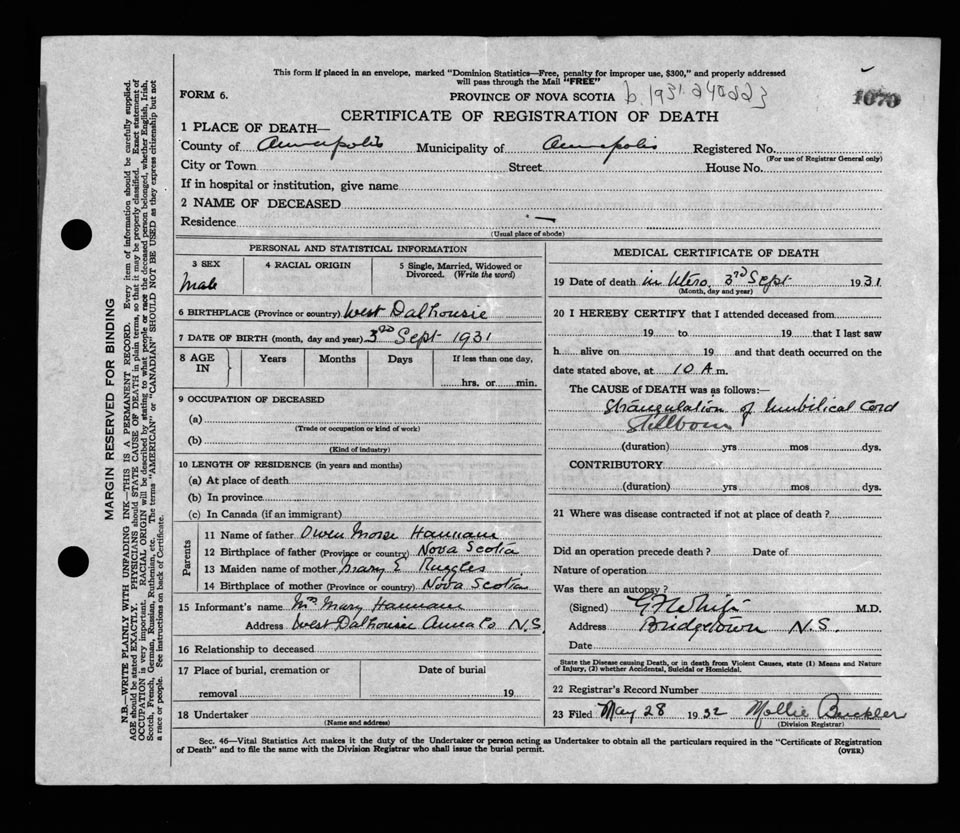 This form if placed in an envelope, marked "Dominion Statistics—Free, penalty for improper use, $300," and properly addressed
will pass through the Mail "FREE"
FORM 6.
PROVINCE OF NOVA SCOTIA
b. 1931
1070
CERTIFICATE OF REGISTRATION OF DEATH
1 PLACE OF DEATH—
County of Annapolis Municipality of Annapolis Registered No.
(For use of Registrar General only)
City or Town Street House No.
If in hospital or institution, give name
2 NAME OF DECEASED
Residence
(Usual place of abode)
PERSONAL AND STATISTICAL INFORMATION
3 SEX 4 RACIAL ORIGIN 5 Single, Married, Widowed or
Divorced. (Write the word)
Male
6 BIRTHPLACE (Province or country) West Dalhousie
7 DATE OF BIRTH (month, day and year) 3rd Sept 1931
8 AGE Years Months Days If less than one day,
IN
hrs. or min.
9 OCCUPATION OF DECEASED
(a)
(Trade or occupation or kind of work)
(b)
(Kind of industry)
10 LENGTH OF RESIDENCE (in years and months)
(a) At place of death
(b) In province
(c) In Canada (if an immigrant)
Parents
11 Name of father Owen Morse Hannam
12 Birthplace of father (Province or country) Nova Scotia
13 Maiden name of mother Mary E Ruggles
14 Birthplace of mother (Province or country) Nova Scotia
15 Informant's name Mrs Mary Hannam
Address West Dalhousie Anna Co N.S.
16 Relationship to deceased
17 Place of burial, cremation or Date of burial
removal 19
18 Undertaker
(Name and address)
MEDICAL CERTIFICATE OF DEATH
19 Date of death in Utero 3rd Sept 1931
(Month, day and year)
20 I HEREBY CERTIFY that I attended deceased from
19 to 19 that I last saw
h alive on 19 and that death occurred on the
date stated above, at 10 A m.
The CAUSE of DEATH was as follows:—
Strangulation of Umbilical Cord
Stillborn
(duration) yrs mos dys.
CONTRIBUTORY
(duration) yrs mos dys.
21 Where was disease contracted if not at place of death?
Did an operation precede death? Date of
Nature of operation
Was there an autopsy?
(Signed) M.D.
Address Bridgetown N.S.
Date
State the Disease causing Death, or in death from Violent Causes, state (1) Means and Nature
of Injury, (2) whether Accidental, Suicidal or Homicidal.
22 Registrar's Record Number
23 Filed May 28 1932 Mollie
(Division Registrar)
Sec. 46—Vital Statistics Act makes it the duty of the Undertaker or person acting as Undertaker to obtain all the particulars required in the "Certificate of Registration
of Death" and to file the same with the Division Registrar who shall issue the burial permit.
(OVER)
MARGIN RESERVED FOR BINDING
N.B.—WRITE PLAINLY WITH UNFADING INK—THIS IS A PERMANENT RECORD. Every item of information should be carefully supplied.
AGE should be stated EXACTLY. PHYSICIANS should STATE CAUSE OF DEATH in plain terms, so that it may be properly classified. Exact statement of
OCCUPATION is very important. RACIAL ORIGIN will be described by stating to what people or race the deceased person belonged, whether English, Irish,
Scotch, French, German, Russian, Ruthenian, etc. The terms "AMERICAN" or "CANADIAN" SHOULD NOT BE USED as they express citizenship but not
a race or people. See instructions on back of Certificate.